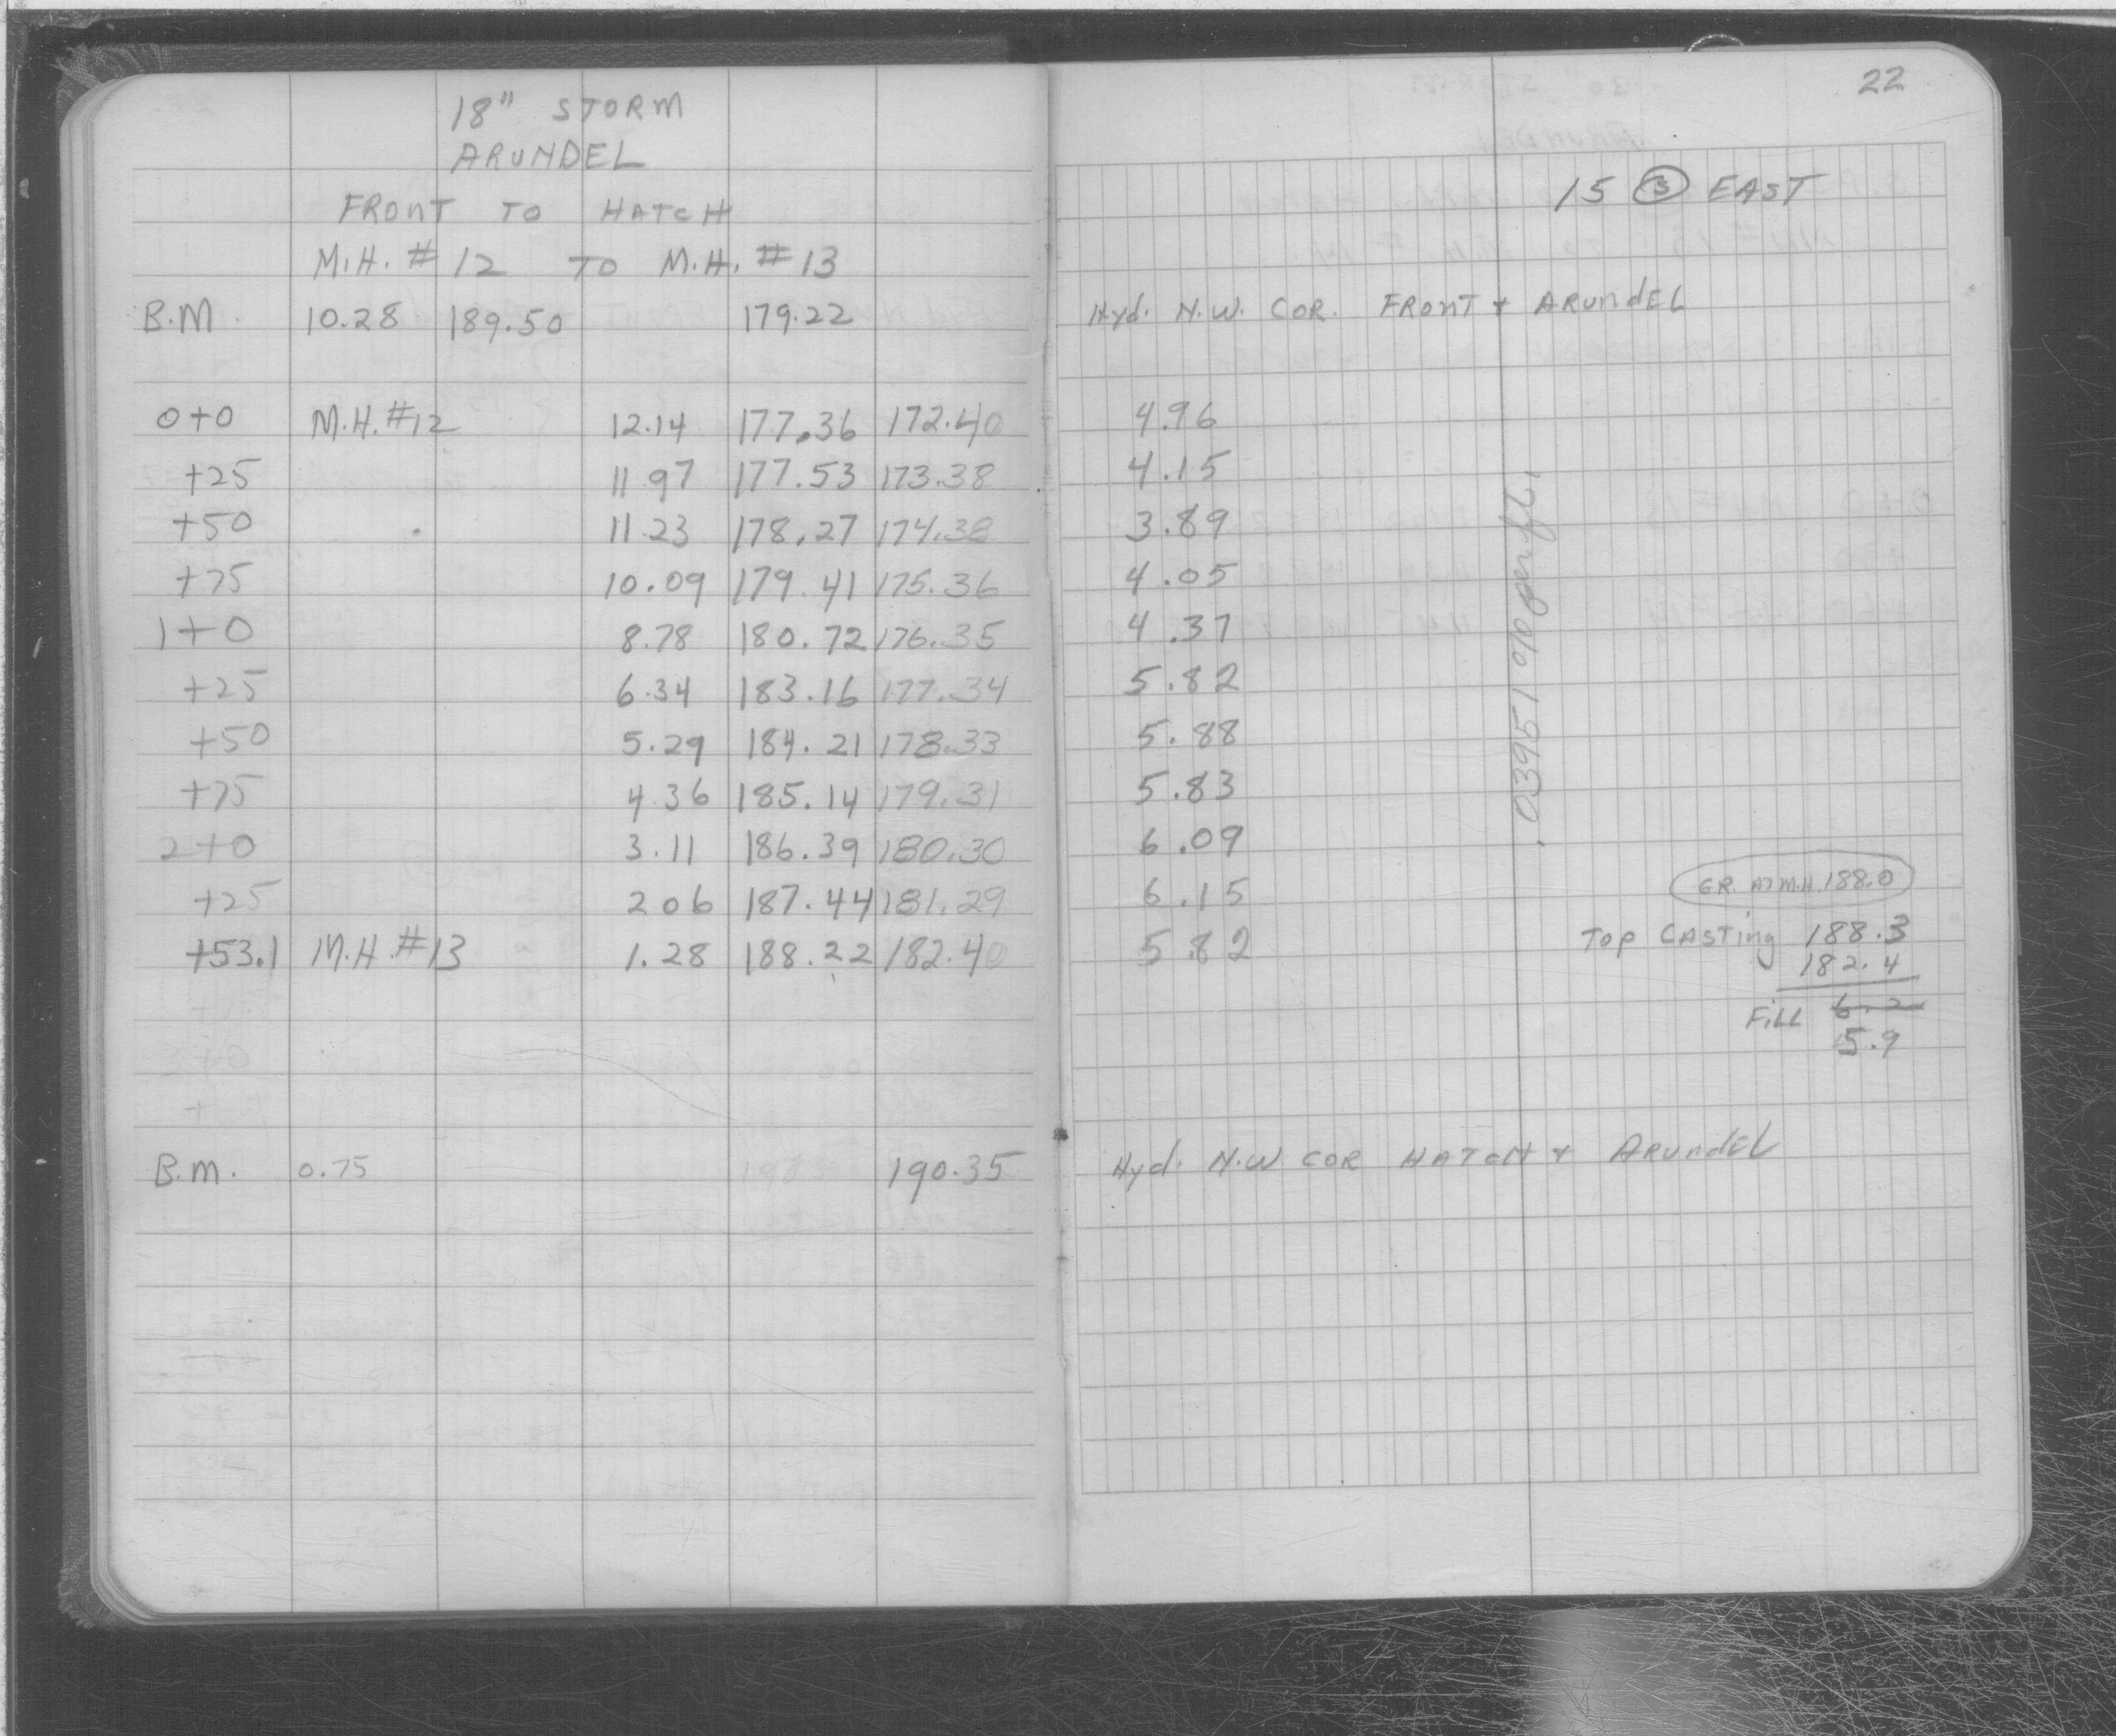 18" STORM
ARUNDEL
FRONT TO HATCH
M.H. # 12 TO M.H. # 13
B.M. 10.28 189.50 179.22
0+0 M.H. #12 12.14 177.36 172.40
+25 11.97 177.53 173.38
+50 11.23 178.27 174.38
+75 10.09 179.41 175.36
1+0 8.78 180.72 176.35
+25 6.34 183.16 177.34
+50 5.29 184.21 178.33
+75 4.36 185.14 179.31
2+0 3.11 186.39 180.30
+25 2 06 187.44 181.29
+53.1 M.H. #13 1.28 188.22 182.40
B.M. 0.75 190.35
22
15 EAST
Hyd. N.W. COR. FRONT + ARUNDEL
4.96
4.15
3.89
4.05
4.37
5.82
5.88
5.83
6.09
6.15
5.82
.03951 % per ft.
GR. AT M.H. 188.0
TOP CASTING 188.3
182.4
FILL 6.2
5.9
Hyd. N.W COR HATCH + ARUNDEL